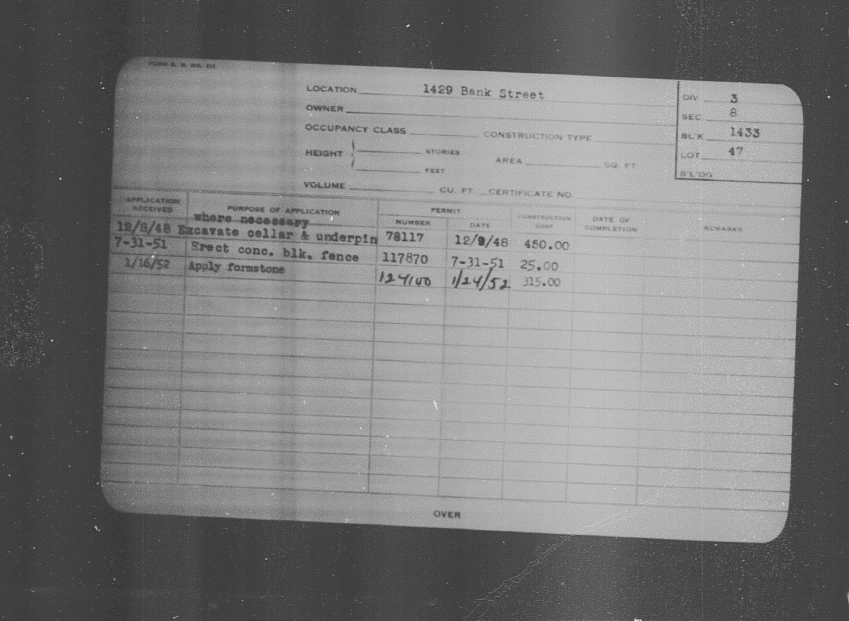 FORM B. B. NO. 311
LOCATION 1429 Bank Street
DIV. 3
OWNER
SEC. 8
OCCUPANCY CLASS CONSTRUCTION TYPE
BL'K 1433
HEIGHT STORIES
AREA SQ. FT.
LOT 47
FEET
B'LDG
VOLUME CU. FT. CERTIFICATE NO.
APPLICATION RECEIVED PURPOSE OF APPLICATION PERMIT NUMBER DATE CONSTRUCTION COST DATE OF COMPLETION REMARKS
where necessary
12/8/48 Excavate cellar & underpin 78117 12/9/48 450.00
7-31-51 Erect conc. blk. fence 117870 7-31-51 25.00
1/16/52 Apply formstone 124100 1/24/52 315.00
OVER